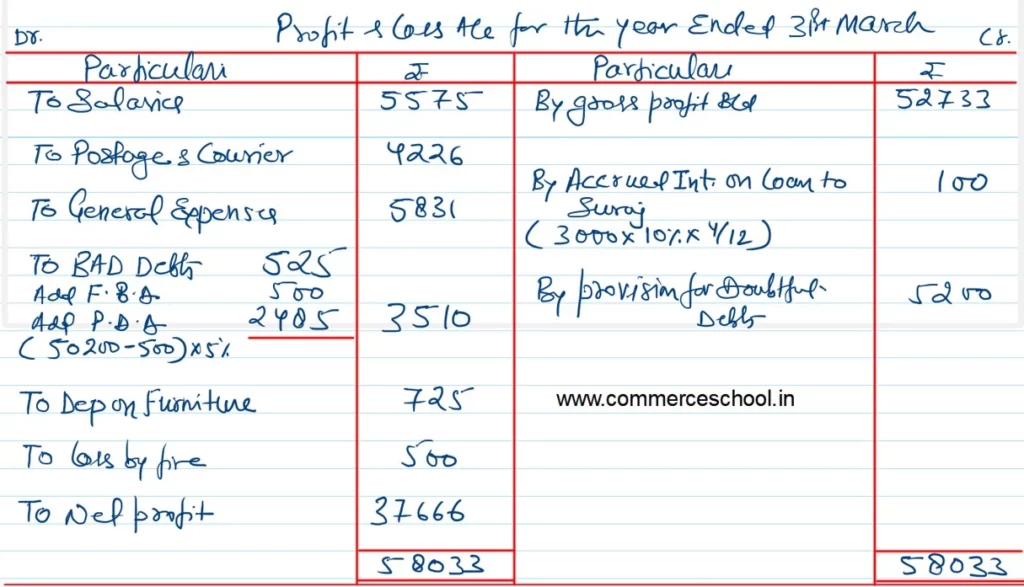 Profit & Loss A/c for the year Ended 31st March
Dr. Cr.
Particulars ₹ Particulars ₹
To Salaries 5575 By gross profit B/d 52733
To Postage & Courier 4226
By Accrued Int. on Loan to 100
Suraj
(3000x10%x4/12)
To General Expenses 5831
To BAD Debts 525
Add F.B.D. 500
Add P.D.D 2485 3510
(50200-500)x5%
By provision for Doubtful 5200
Debts
To Dep on Furniture 725
www.commerceschool.in
To loss by fire 500
To Net profit 37666
58033 58033